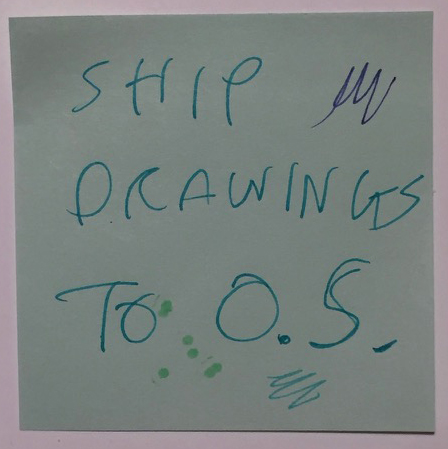 SHIP
DRAWINGS
TO O.S.